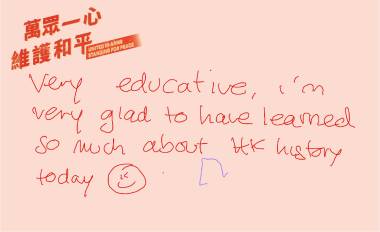 萬眾一心
維護和平
UNITED IN ARMS
STANDING FOR PEACE
Very educative, i'm
very glad to have learned
so much about HK history
today